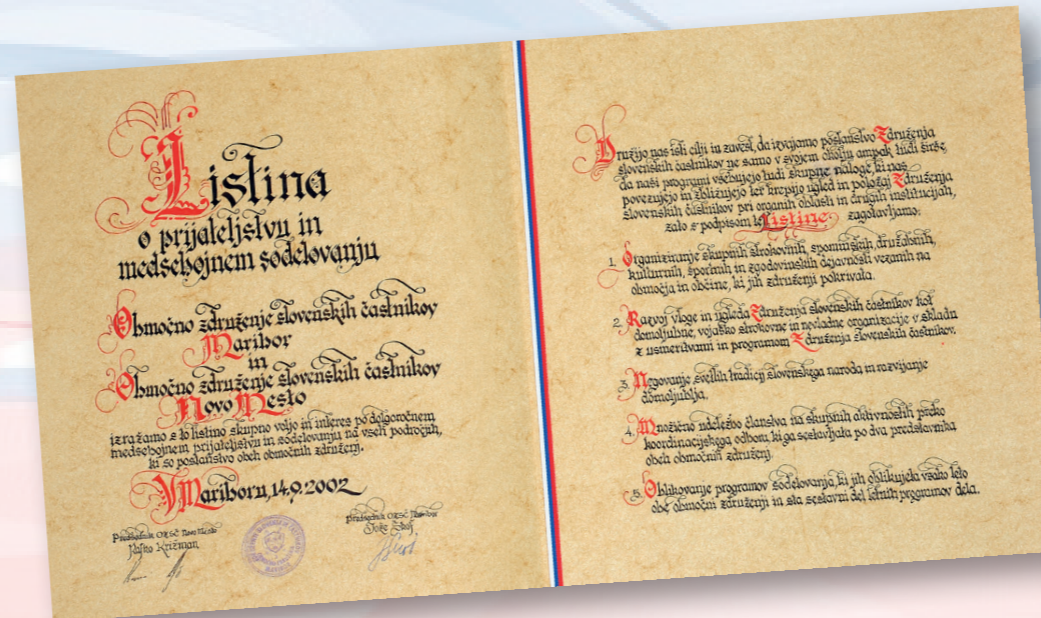 Listina
o prijateljstvu in
medsebojnem sodelovanju
Območno združenje slovenskih častnikov
Maribor
in
Območno združenje slovenskih častnikov
Novo Mesto
izražamo s to listino skupno voljo in interes po dolgoročnem
medsebojnem prijateljstvu in sodelovanju na vseh področjih,
ki so poslanstvo obeh območnih združenj.
V Mariboru, 14.9.2002
Predsednik OZSČ Novo Mesto
Križman
Predsednik OZSČ Maribor
Družijo nas isti cilji in zavest, da izvajamo poslanstvo Združenja
slovenskih častnikov ne samo v svojem okolju ampak tudi širše,
da naši programi vsebujejo tudi skupne naloge, ki nas
povezujejo in zbližujejo ter krepijo ugled in položaj Združenja
slovenskih častnikov pri organih oblasti in drugih institucijah,
zato s podpisom te Listine zagotavljamo:
1. Organiziranje skupnih strokovnih, spominskih, družabnih,
kulturnih, športnih in zgodovinskih dejavnosti vezanih na
območja in občine, ki jih združenji pokrivata.
2. Razvoj vloge in ugleda Združenja slovenskih častnikov kot
domoljubne, vojaško strokovne in nevladne organizacije v skladu
z usmeritvami in programom Združenja slovenskih častnikov.
3. Negovanje svetlih tradicij slovenskega naroda in razvijanje
domoljubja.
4. Množično udeležbo članstva na skupnih aktivnostih preko
koordinacijskega odbora, ki ga sestavljata po dva predstavnika
obeh območnih združenj.
5. Oblikovanje programov sodelovanja, ki jih oblikujeta vsako leto
obe območni združenji in sta sestavni del letnih programov dela.